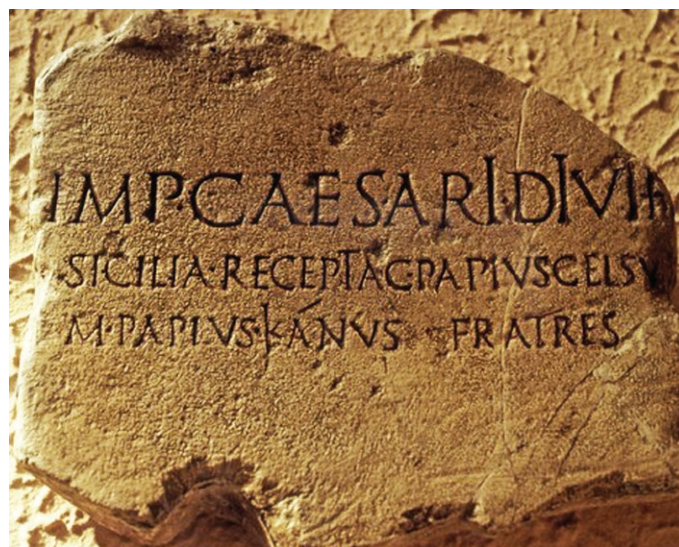 IMP·CAESARI·DIVI·F
SICILIA·RECEPTA·C·PAPIVS·CELSV
M·PAPIVS·KÁNVS FRATRES